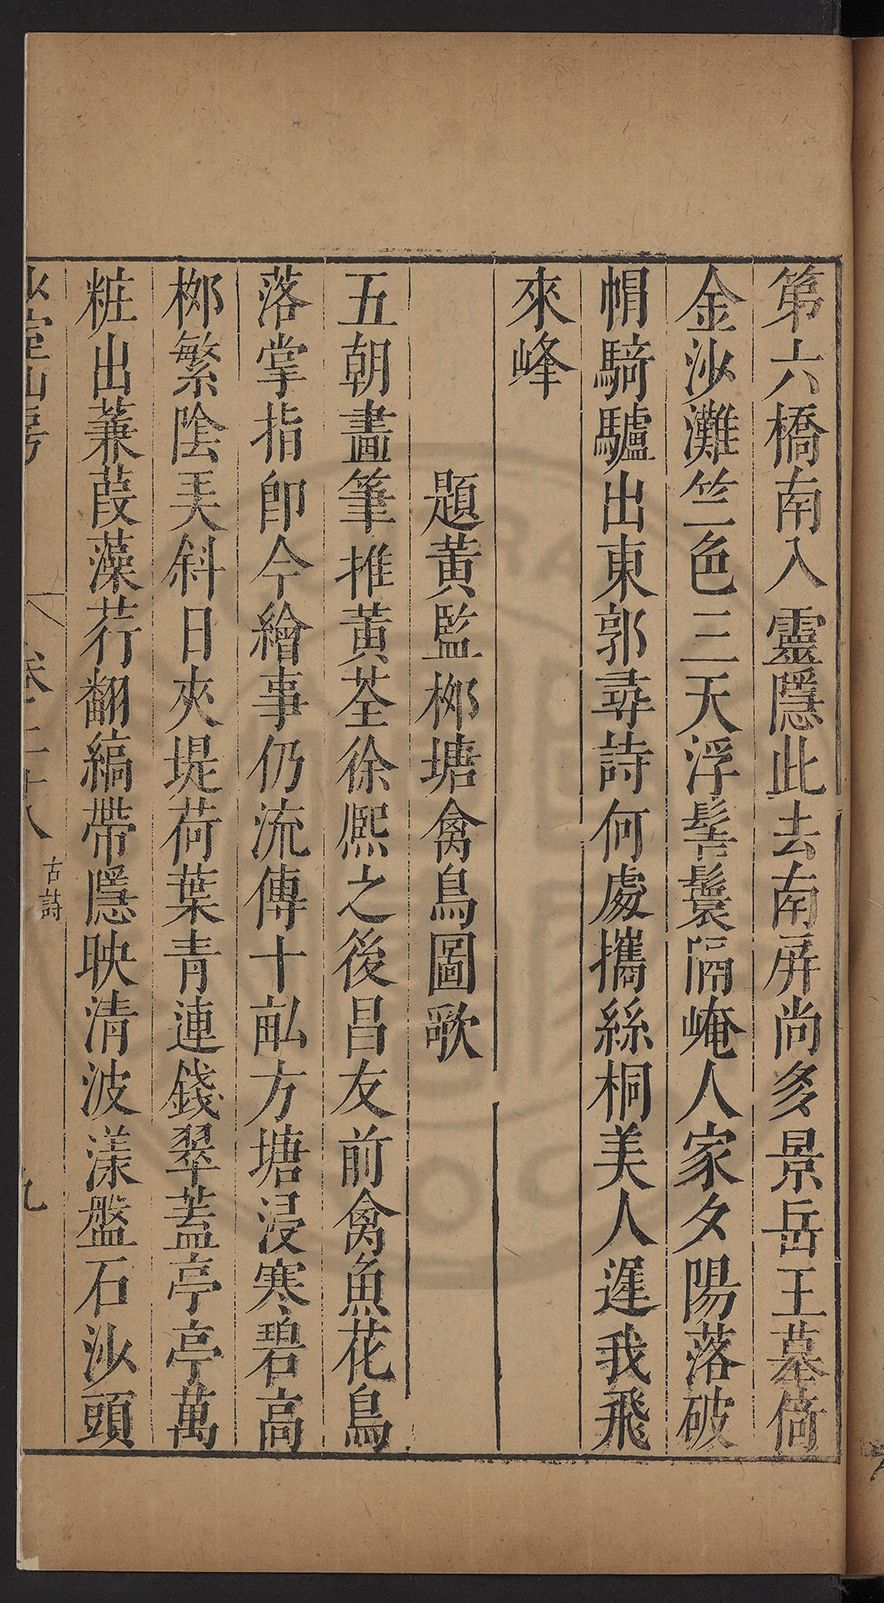 第六橋南入靈隱此去南屏尚多景岳王墓倚
金沙灘竺色三天浮髻鬟隔崦人家夕陽落破
帽騎驢出東郭尋詩何處攜絲桐美人遲我飛
來峰
題黃監栁塘禽鳥圖歌
五朝畫筆推黃荃徐熈之後昌友前禽魚花鳥
落掌指卽今繪事仍流傳十畝方塘浸寒碧高
栁繁陰芙斜日夾堤荷葉青連錢翠蓋亭亭萬
粧出蒹葭藻荇翻縞帶隱映清波漾盤石沙頭
山房
卷二十八
古詩
九